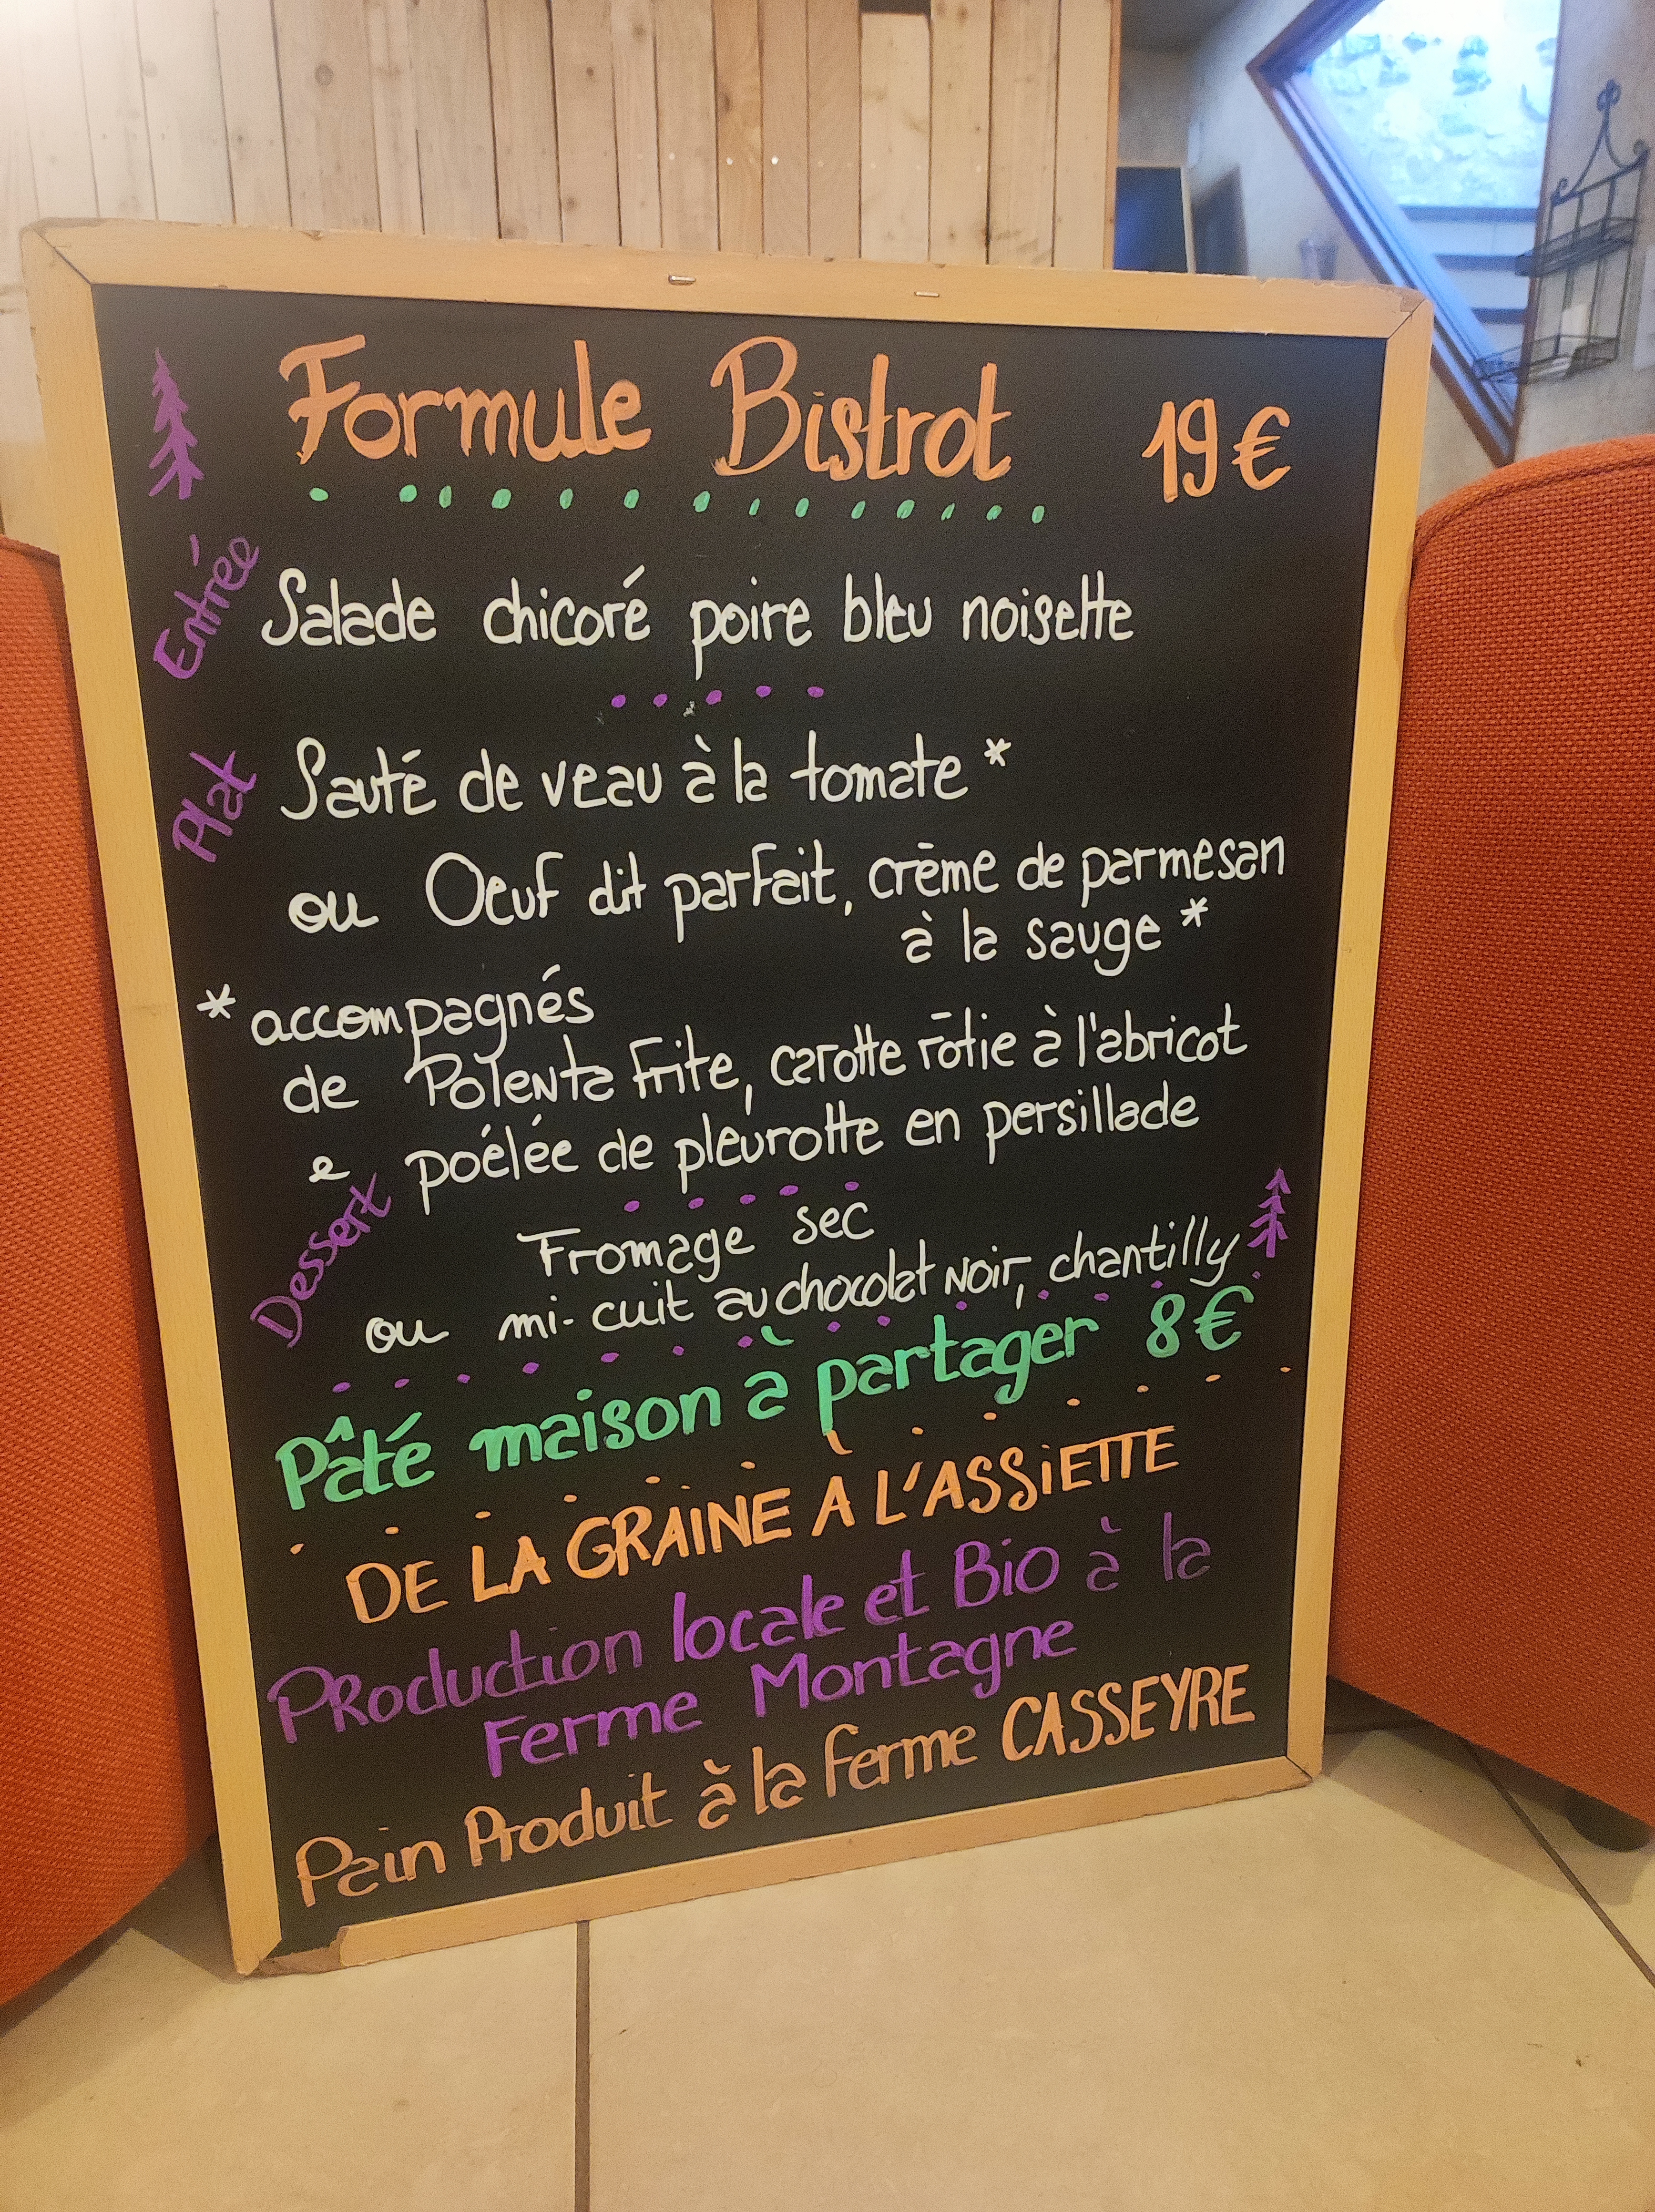 Formule Bistrot 19€
Entrée
Salade chicoré poire bleu noisette
Plat
Sauté de veau à la tomate *
ou Oeuf dit parfait, crème de parmesan
à la sauge *
* accompagnés
de Polenta frite, carotte rōtie à l'abricot
e poélée de pleurotte en persillade
Dessert
Fromage sec
ou mi-cuit au chocolat Noir, chantilly
Pâté maison à partager 8€
DE LA GRAINE À L'ASSiETTE
PRoduction locale et Bio à la
Ferme Montagne
Pain Produit à la ferme CASSEYRE